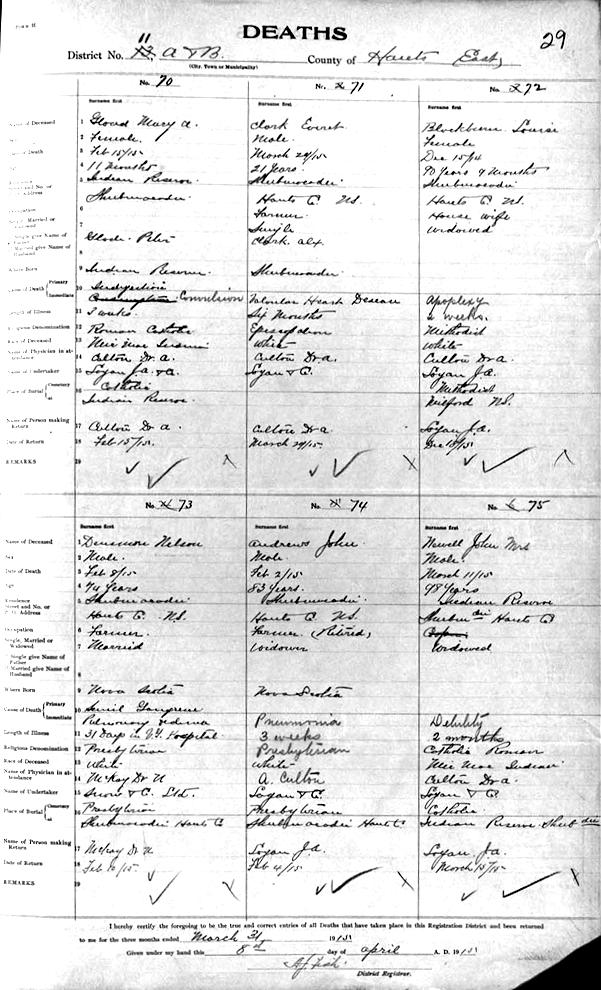 DEATHS
29
District No. 11 A & B. County of Hants East,
(City, Town or Municipality)
No. 70
No. 71
No. 72
Surname first
Surname first
Surname first
Name of Deceased
1 Gload Mary A.
Clark Everet
Blackburn Louise
2 Female.
Male.
Female
3 Feb 15/15
March 29/15
Dec 15/14
4 11 Months
21 Years
90 Years 9 Months
5 Indian Reserve
Shubenacadie
Shubenacadie
Shubenacadie
Hants C. NS.
Hants C NS.
6
Farmer
House wife
7
Single
Widowed
Glode Peter
Clark Alex
8
Where Born
9 Indian Reserve
Shubenacadie
Cause of Death Primary Immediate
10 Indigestion
Consumption Convulsion
Valvular Heart Disease
Apoplexy
Length of Illness
11 3 weeks
Six Months
2 weeks
Religious Denomination
12 Roman Catholic
Episcopalian
Methodist
Race of Deceased
13 Mic Mac Indian
White
White
Name of Physician in attendance
14 Culton Dr. A.
Culton Dr A
Culton Dr A
Name of Undertaker
15 Logan J.A. & C.
Logan & C.
Logan J.A.
Place of Burial Cemetery at
16 Catholic
Methodist
Indian Reserve
Milford N.S.
Name of Person making Return
17 Culton Dr A
Culton Dr A
Logan J.A.
Date of Return
18 Feb 15/15.
March 29/15.
Dec 18/15
REMARKS
19
No. 73
No. 74
No. 75
Surname first
Surname first
Surname first
Name of Deceased
1 Densmore Nelson
Andrews John
Newell John Mrs
Sex
2 Male.
Male
Male.
Date of Death
3 Feb 8/15
Feb 2/15
March 11/15
Age
4 74 Years
83 Years.
98 Years
Residence Street and No. or P.O. Address
5 Shubenacadie
Shubenacadie
Indian Reserve
Hants C. NS.
Hants C. NS.
Shubendie Hants C
Occupation
6 Farmer
Farmer (Retired)
Single, Married or Widowed
7 Married
Widower
Widowed
If Single give Name of Father
If Married give Name of Husband
8
Where Born
9 Nova Scotia
Nova Scotia
Cause of Death Primary Immediate
10 Senile Gangrene
Pulmonary Edema
Pneumonia
Debility
Length of Illness
11 31 Days in V.G. Hospital.
3 weeks
2 months
Religious Denomination
12 Presbyterian
Presbyterian
Catholic Roman
Race of Deceased
13 White
White
Mic Mac Indian
Name of Physician in attendance
14 McKay Dr N
A. Culton
Culton Dr A
Name of Undertaker
15 Snow & C. Ltd.
Logan & C.
Logan & C.
Place of Burial Cemetery at
16 Presbyterian
Presbyterian
Catholic
Shubenacadie Hants C
Shubenacadie Hants C
Indian Reserve Shubdie
Name of Person making Return
17 McKay Dr N
Logan J.A.
Logan J.A.
Date of Return
18 Feb 10/15.
Feb 4/15
March 15/15
REMARKS
19
I hereby certify the foregoing to be the true and correct entries of all Deaths that have taken place in this Registration District and been returned
to me for the three months ended March 31 1915
Given under my hand this 8th day of April A. D. 1915
District Registrar.